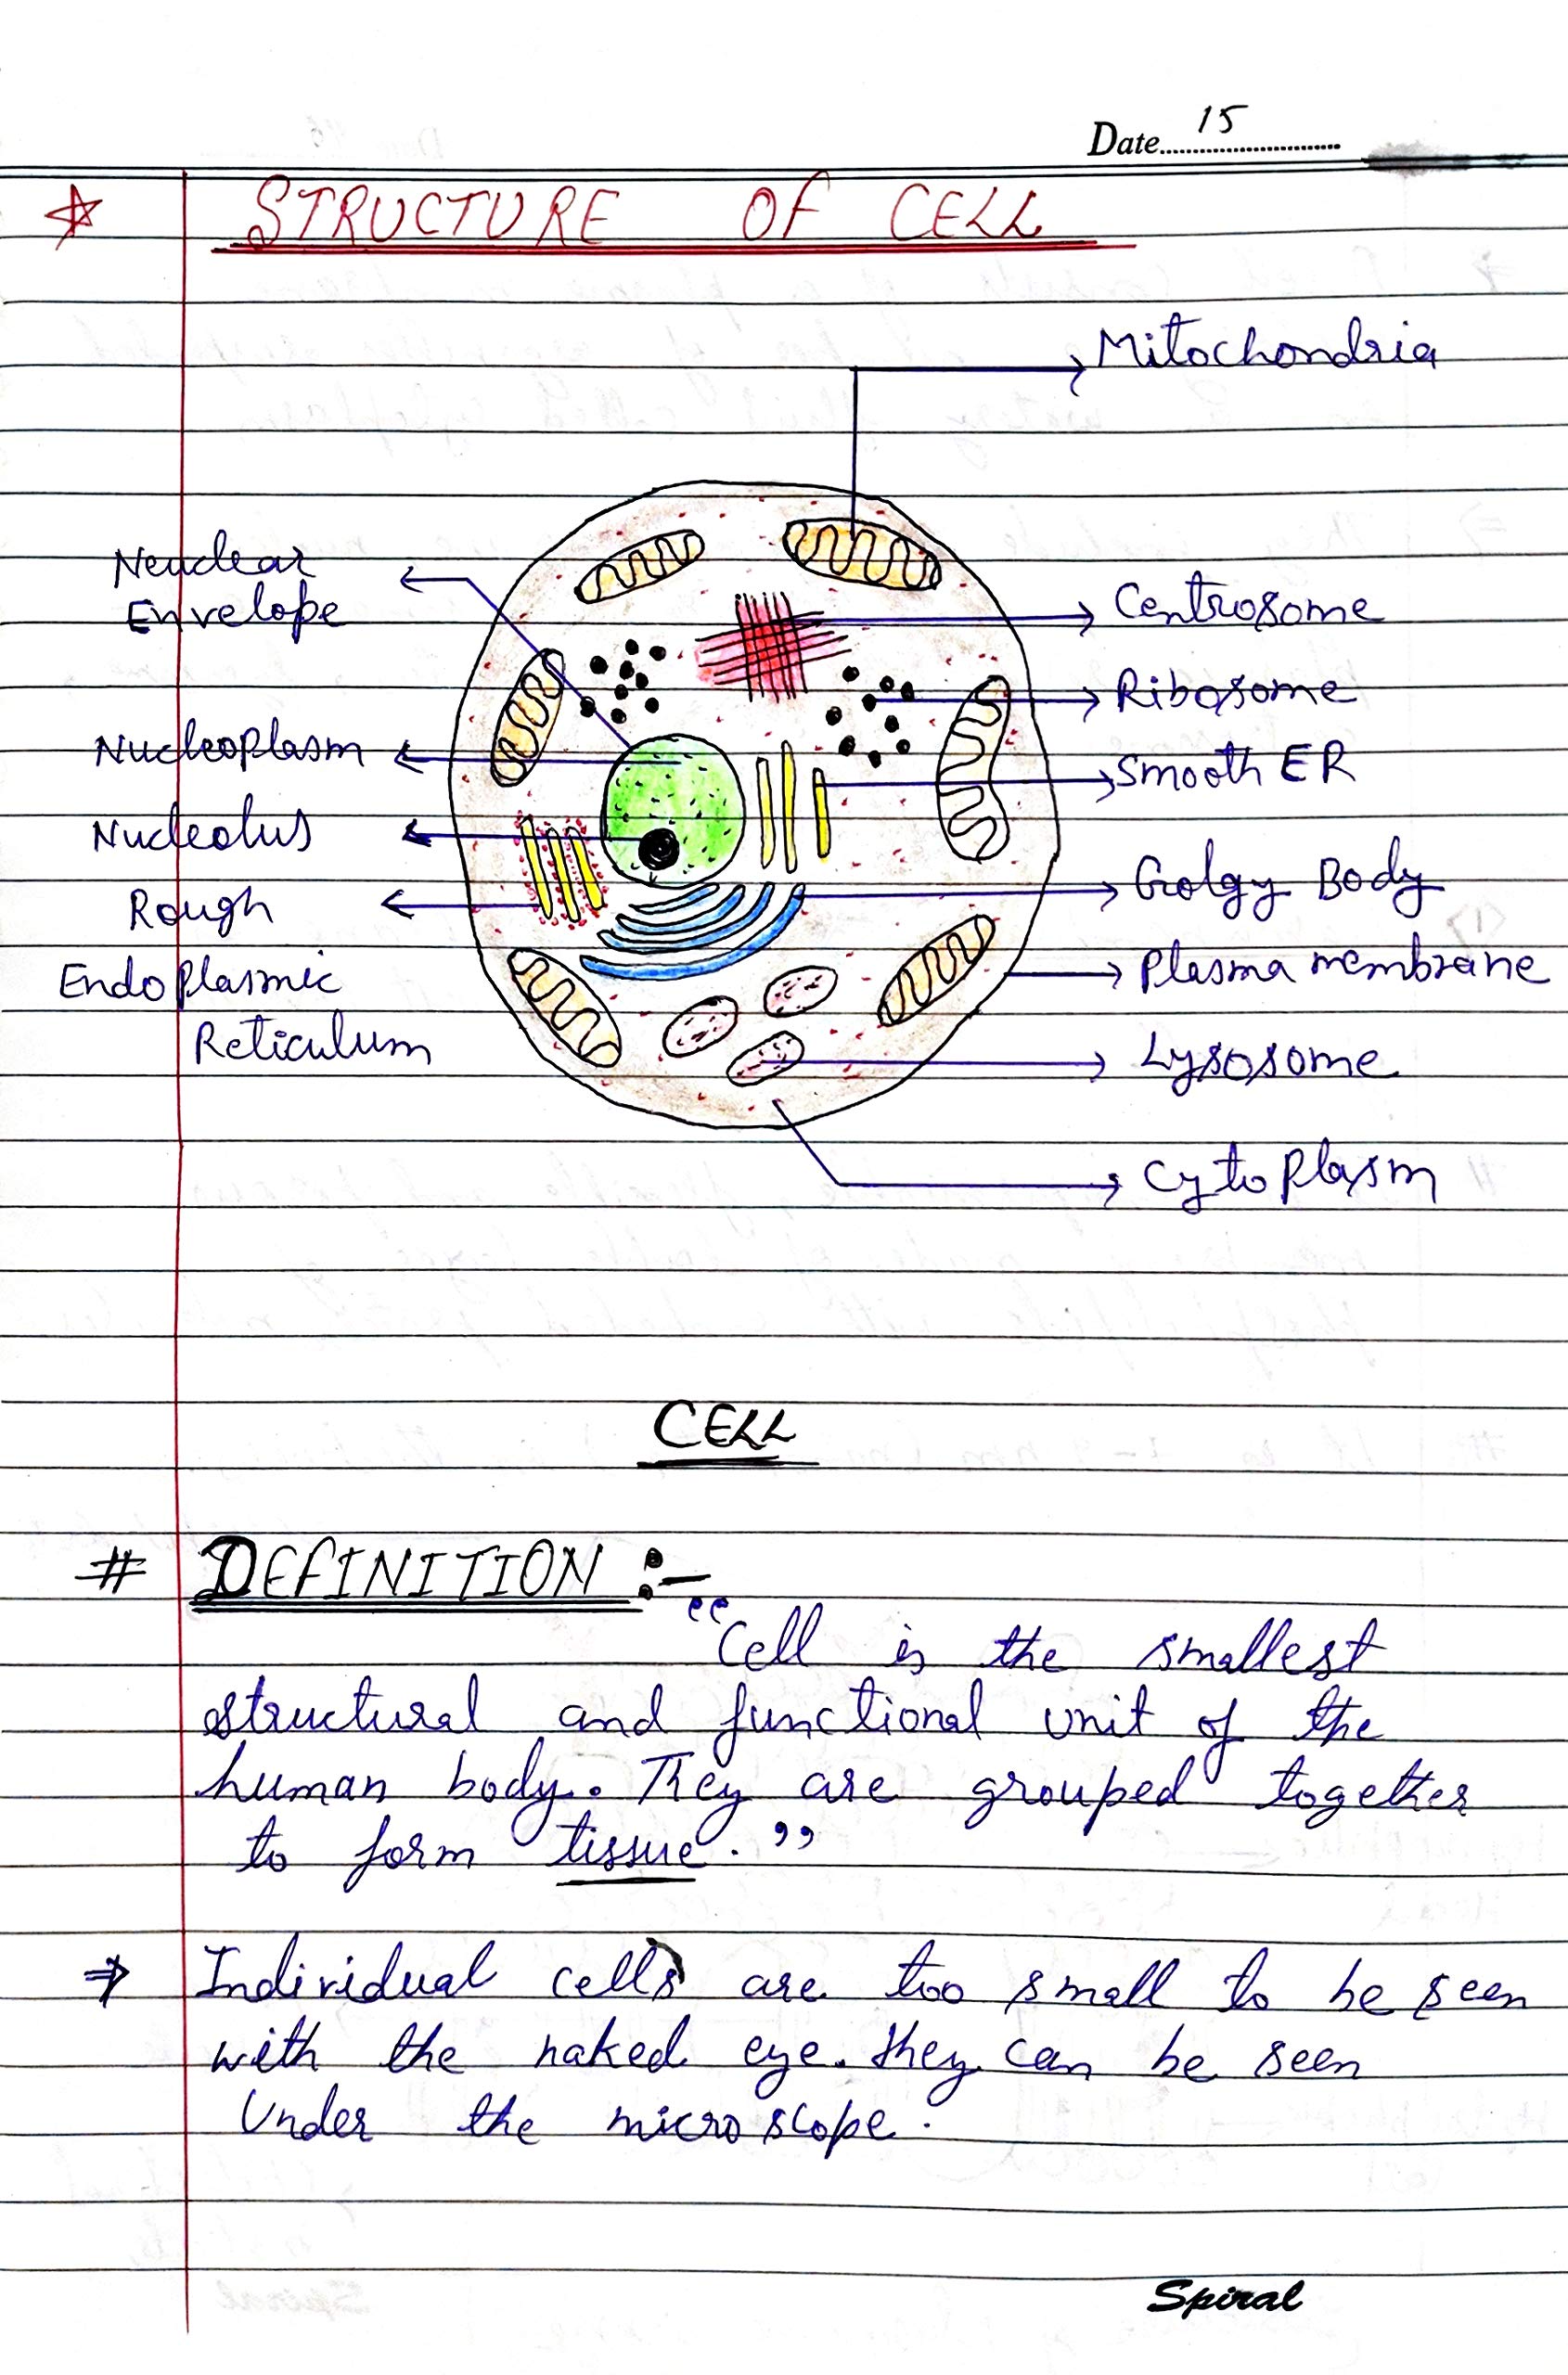 Date 15
☆ STRUCTURE OF CELL
Mitochondria
Neuclear
Envelope
Centrosome
Ribosome
Nucleoplasm
Smooth ER
Nucleolus
Golgy Body
Rough
Endoplasmic
Reticulum
Plasma membrane
Lysosome
Cytoplasm
CELL
# DEFINITION :-
“Cell is the smallest
structural and functional unit of the
human body. They are grouped together
to form tissue.”
⇒ Individual cells are too small to be seen
with the naked eye. they can be seen
Under the microscope.
Spiral